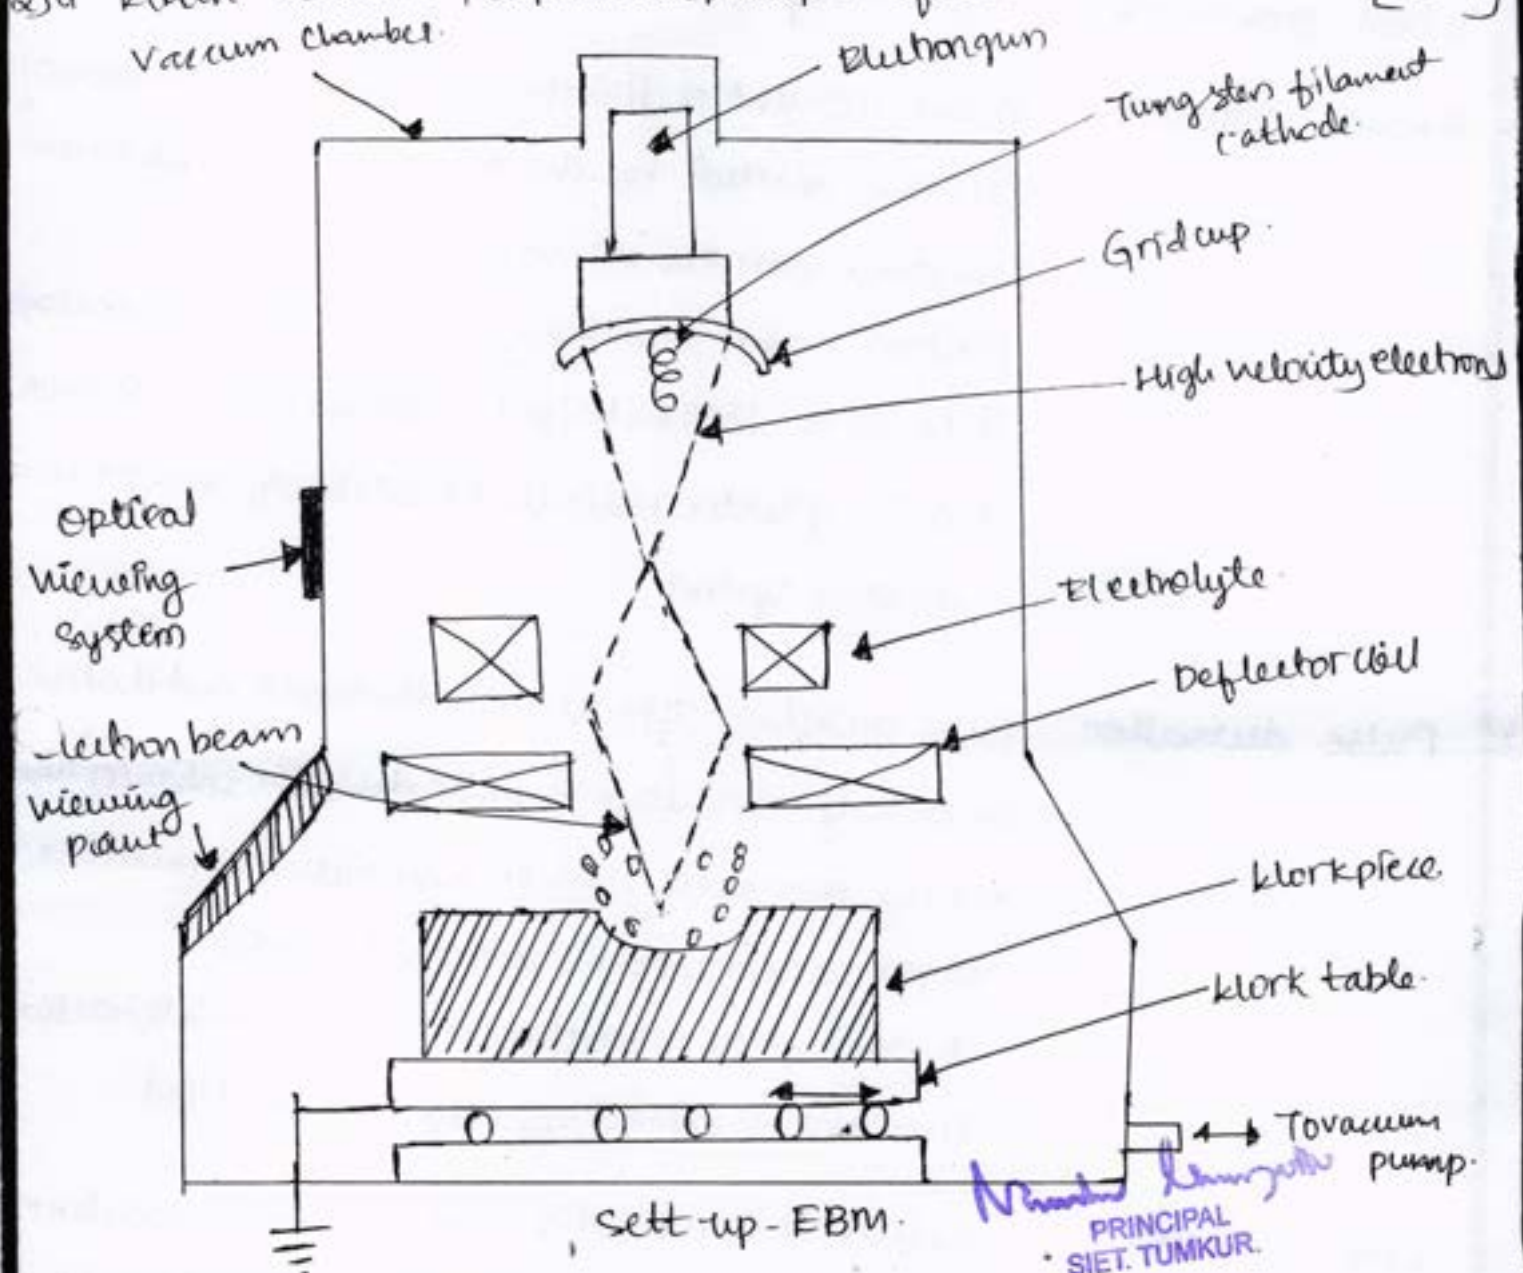 Vaccum chamber.
Electrongun
Tungsten filament
cathode.
Gridcup.
High velocity electrons
Optical
viewing
system
Electrolyte.
Deflector coil
lectron beam
viewing
Workpiece.
Work table.
Tovacuum
pump.
Sett-up - EBM.
PRINCIPAL
SIET. TUMKUR.